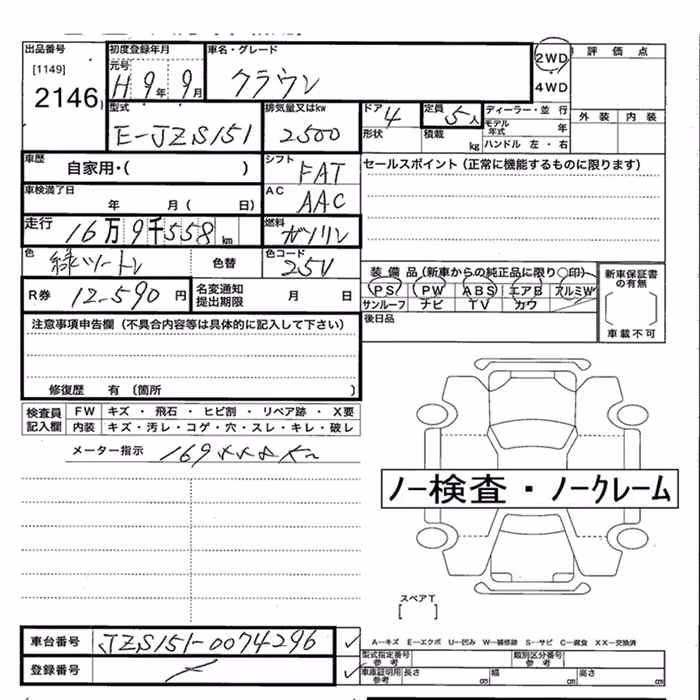 出品番号 初度登録年月 車名・グレード 2WD 評価点
[1149] 元号 H 9年 9月 クラウン 4WD
2146 型式 排気量又はkw ドア 4 定員 5人 ディーラー・並行 外装 内装
E-JZS151 2500 形状 積載 kg モデル年式 年
ハンドル 左・右
車歴 自家用・( ) シフト FAT セールスポイント(正常に機能するものに限ります)
車検満了日 年 月( 日) AC AAC
走行 16万9千558km 燃料 ガソリン
色 緑ツートン 色替 色コード 25V 装備品(新車からの純正品に限り○印) 新車保証書の有無
R券 12-590円 名変通知提出期限 月 日 PS PW ABS エアB アルミW
サンルーフ ナビ TV カワ
注意事項申告欄(不具合内容等は具体的に記入して下さい) 後日品 車載不可
修復歴 有(箇所 )
検査員記入欄 FW キズ・飛石・ヒビ割・リペア跡・X要
内装 キズ・汚レ・コゲ・穴・スレ・キレ・破レ
メーター指示 169***Km
ノー検査・ノークレーム
スペアT
[ ]
車台番号 JZS151-0074296 A-キズ E-エクボ U-凹み W-補修跡 S-サビ C-腐食 XX-交換済
登録番号 型式指定番号 参考 類別区分番号 参考
車庫証明用 参考 長さ cm 幅 cm 高さ cm